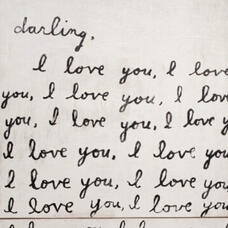 darling,
I love you, I love
you, I love you, I love
you, I love you, I love y
I love you, I love you,
I love you, I love you
I love you, I love you